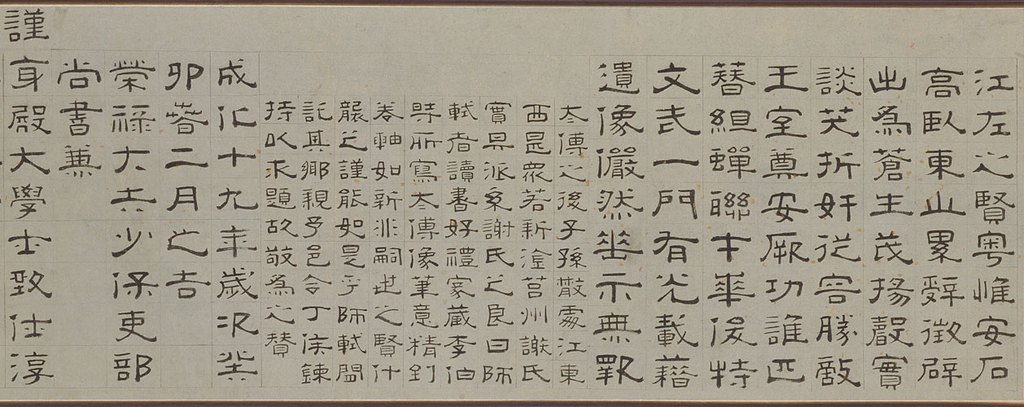 江左之賢粵惟安石
高臥東山累辭徵辟
出為蒼生茂揚聲實
談笑折奸從容勝敵
王室奠安厥功誰匹
簪組蟬聯才華俊特
文武一門有光載藉
遺像儼然垂示無斁
太傅之後子孫散處江東
西最眾若新淦莒州謝氏
實其派系謝氏之良曰師
軾者讀書好禮家藏李伯
時所寫太傅像筆意精到
卷軸如新非嗣世之賢什
襲之謹能如是乎師軾間
託其鄉親予邑令丁侯鍊
持以求題故敬為之贊
成化十九年歲次癸
卯春二月之吉
榮祿大夫少保吏部
尚書兼
謹身殿大學士致仕淳